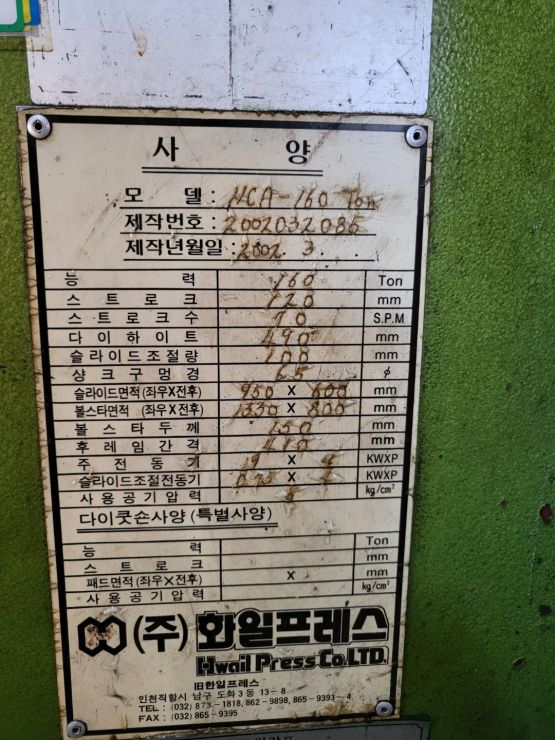 사 양
모 델 : HCA-160 Ton
제작번호 : 2002032085
제작년월일 : 2002. 3
능 력 160 Ton
스 트 로 크 120 mm
스 트 로 크 수 70 S.P.M
다 이 하 이 트 490 mm
슬 라 이 드 조 절 량 100 mm
샹 크 구 멍 경 65 ϕ
슬라이드면적 (좌우X전후) 950 X 600 mm
볼스타면적 (좌우X전후) 1330 X 800 mm
볼 스 타 두 께 150 mm
후 레 임 간 격 mm
주 전 동 기 X 4 KWXP
슬라이드조절전동기 X KWXP
사 용 공 기 압 력 kg/cm²
다이쿳숀사양 (특별사양)
능 력 Ton
스 트 로 크 mm
패드면적 (좌우X전후) X mm
사 용 공 기 압 력 kg/cm²
(주) 화일프레스
Hwail Press Co. LTD.
旧한일프레스
인천직할시 남구 도화 3 동 13 - 8
TEL : (032) 873 - 1818, 862 - 9898, 865 - 9393 ~ 4
FAX : (032) 865 - 9395